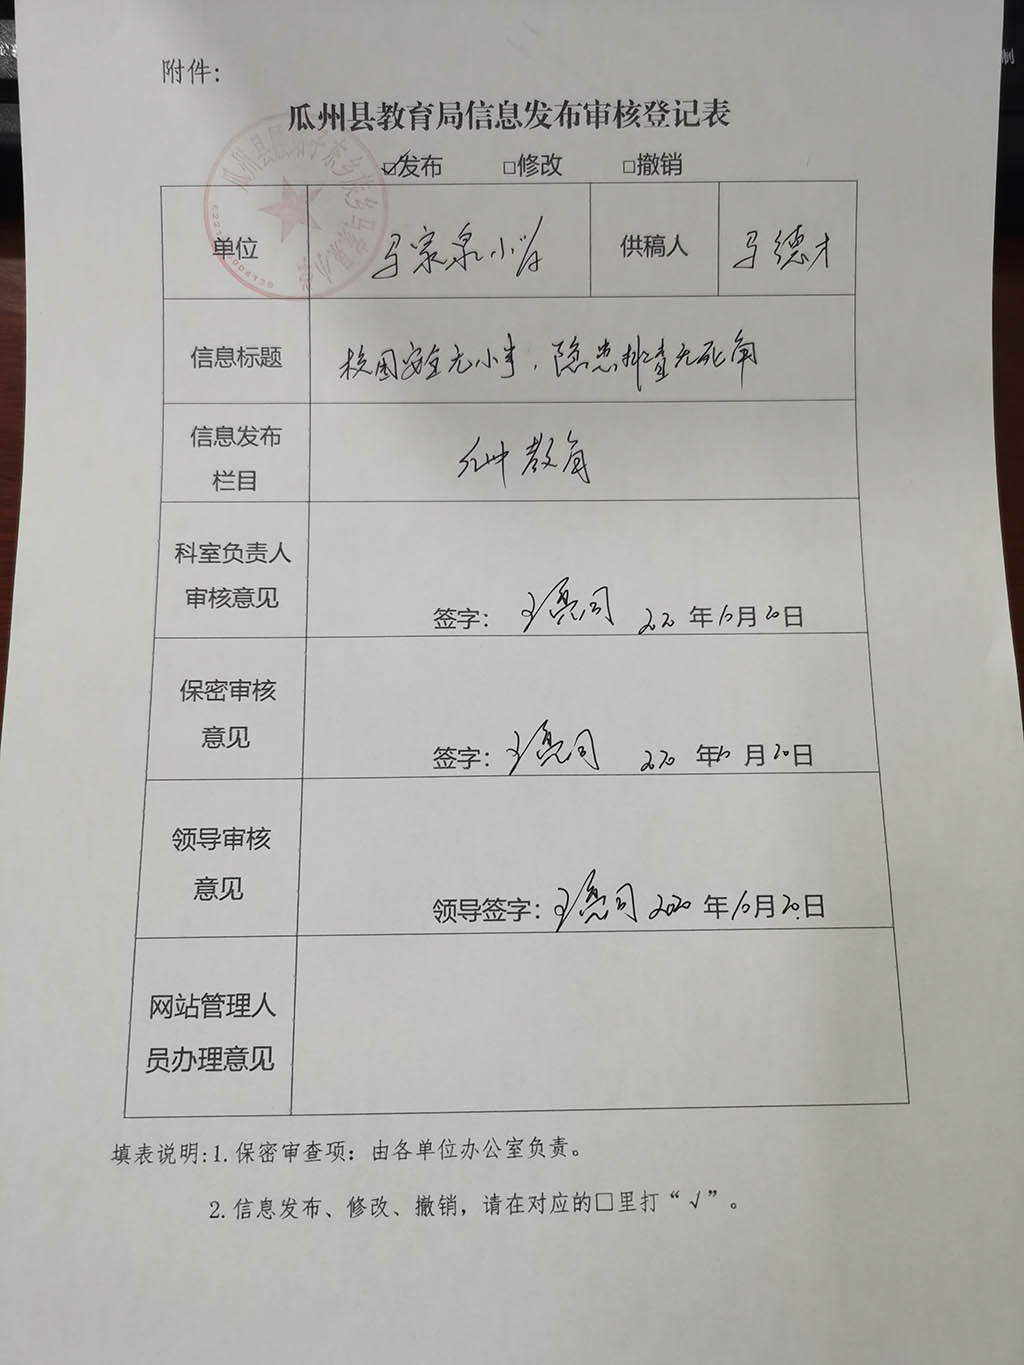 附件:
瓜州县教育局信息发布审核登记表
☑发布 □修改 □撤销
单位 马家泉小学 供稿人 马德才
信息标题 校园安全无小事，隐患排查无死角
信息发布
栏目 瓜州教育
科室负责人
审核意见
签字： 2020 年10月20日
保密审核
意见
签字： 2020 年10月20日
领导审核
意见
领导签字： 2020 年10月20日
网站管理人
员办理意见
填表说明:1.保密审查项：由各单位办公室负责。
2.信息发布、修改、撤销，请在对应的□里打“√”。